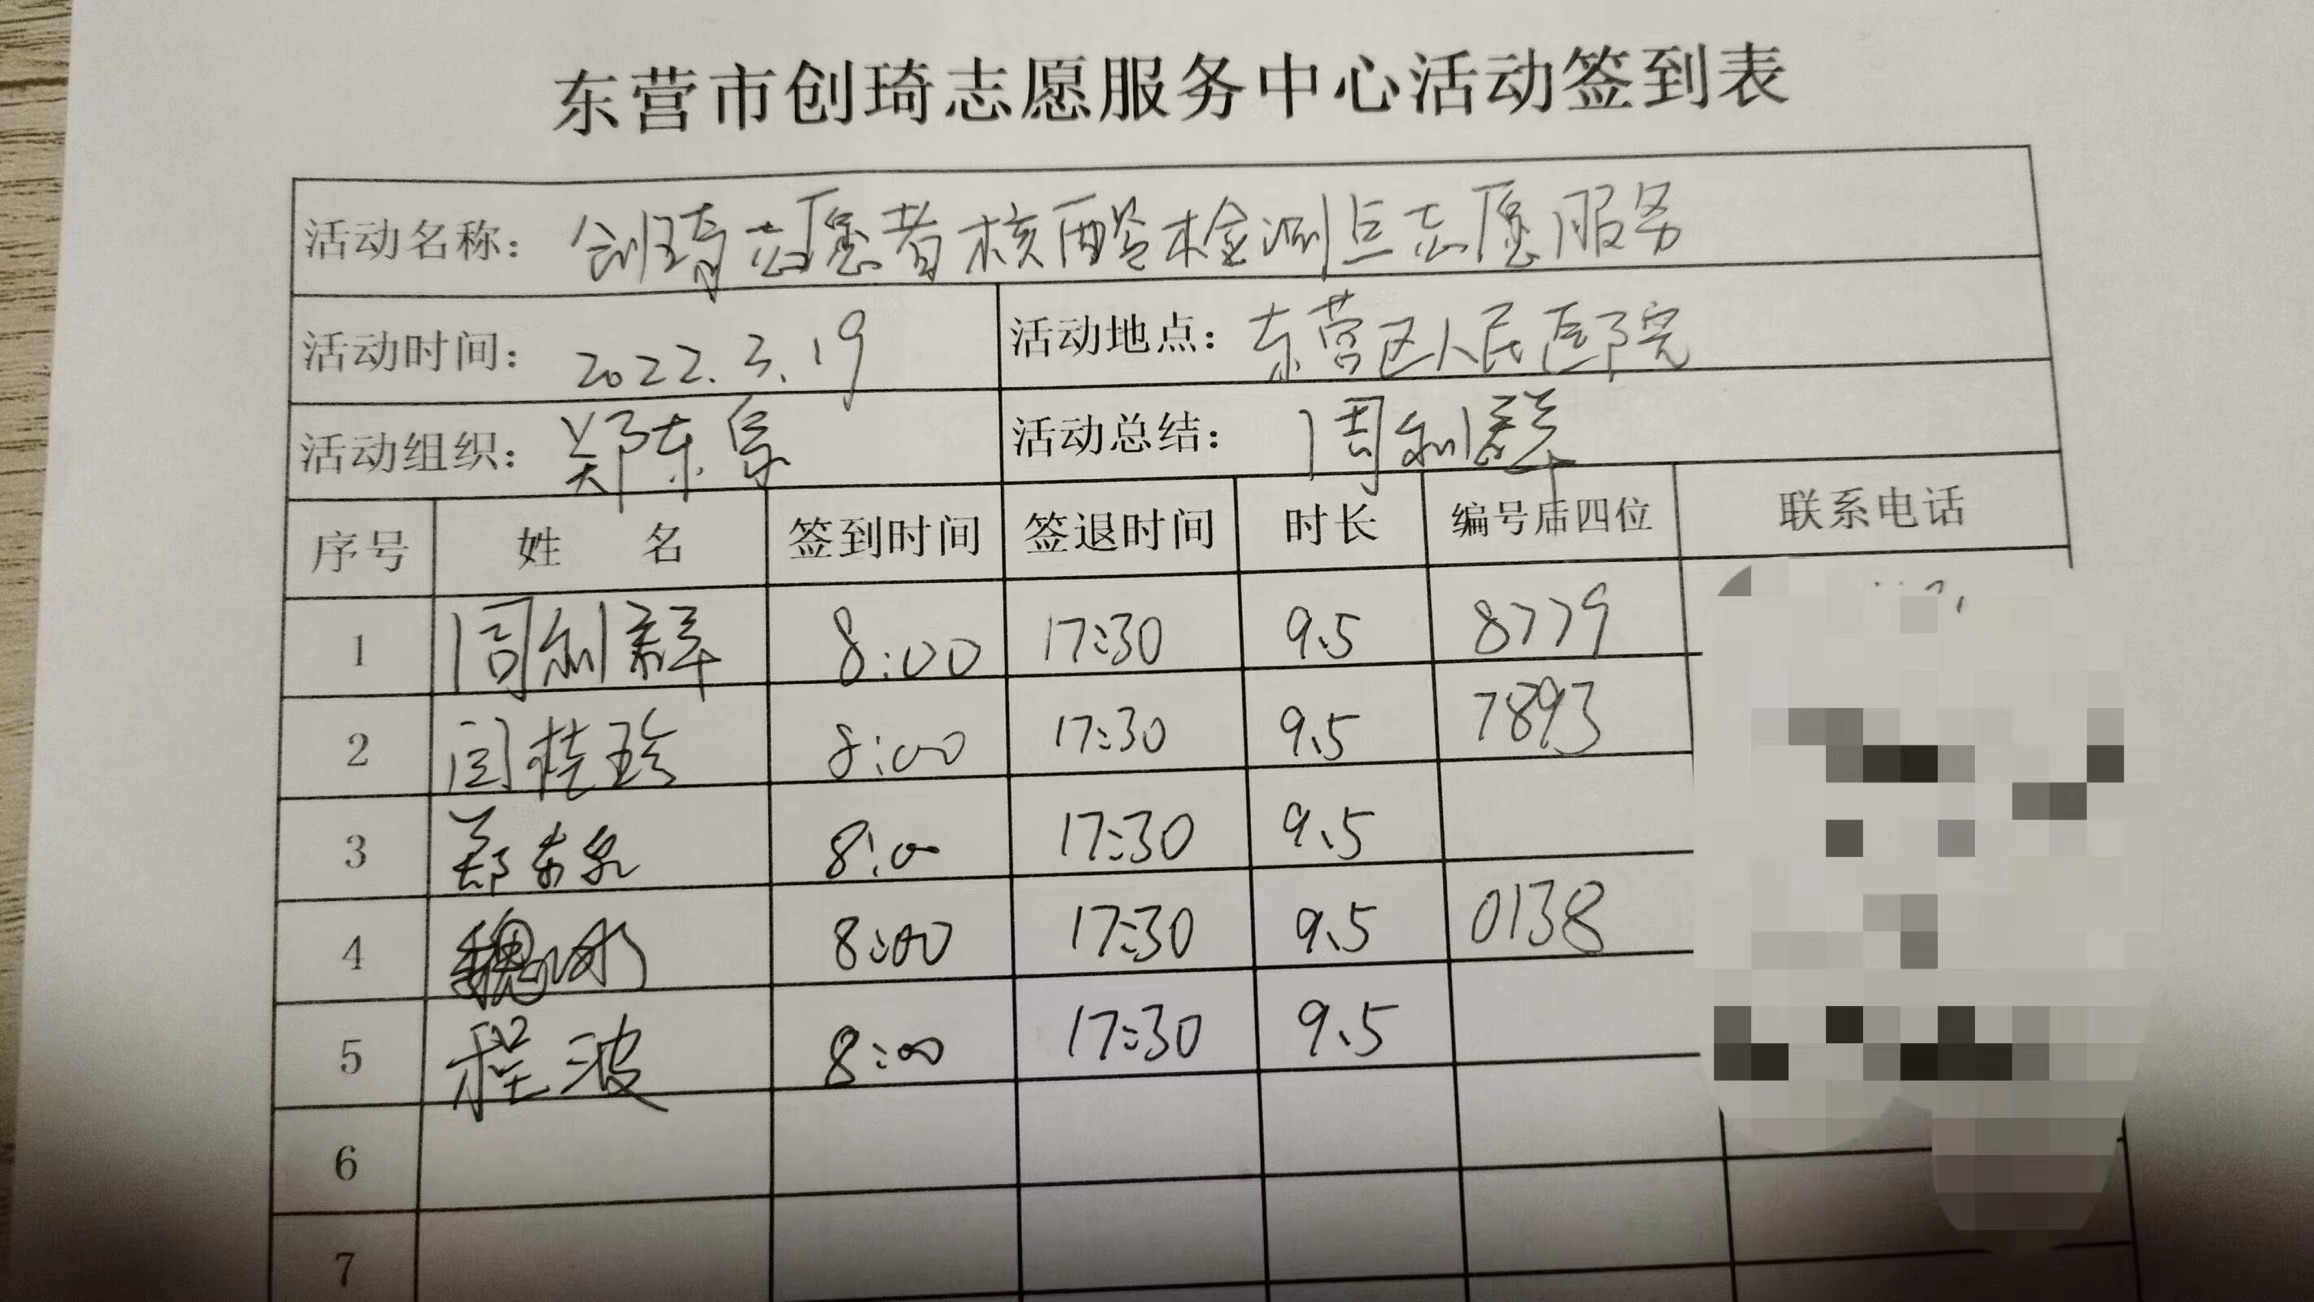 东营市创琦志愿服务中心活动签到表
活动名称： 创琦志愿者核酸检测点志愿服务
活动时间： 2022.3.19 活动地点： 东营区人民医院
活动组织： 郑东泉 活动总结： 周利群
序号 姓 名 签到时间 签退时间 时长 编号后四位 联系电话
1 周利群 8:00 17:30 9.5 8779
2 闫桂珍 8:00 17:30 9.5 7893
3 郑东泉 8:00 17:30 9.5
4 8:00 17:30 9.5 0138
5 程波 8:00 17:30 9.5
6
7